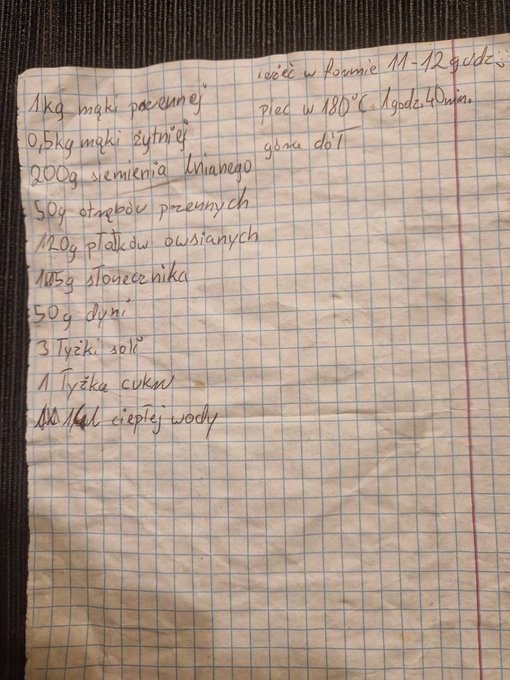 1kg mąki pszennej
0,5kg mąki żytniej
200g siemienia lnianego
50g otrębów pszennych
120g płatków owsianych
105g słonecznika
50g dyni
3 łyżki soli
1 łyżka cukru
ciepłej wody
leżeć w formie 11-12 godz
piec w 180°C 1godz.40min.
góra dół